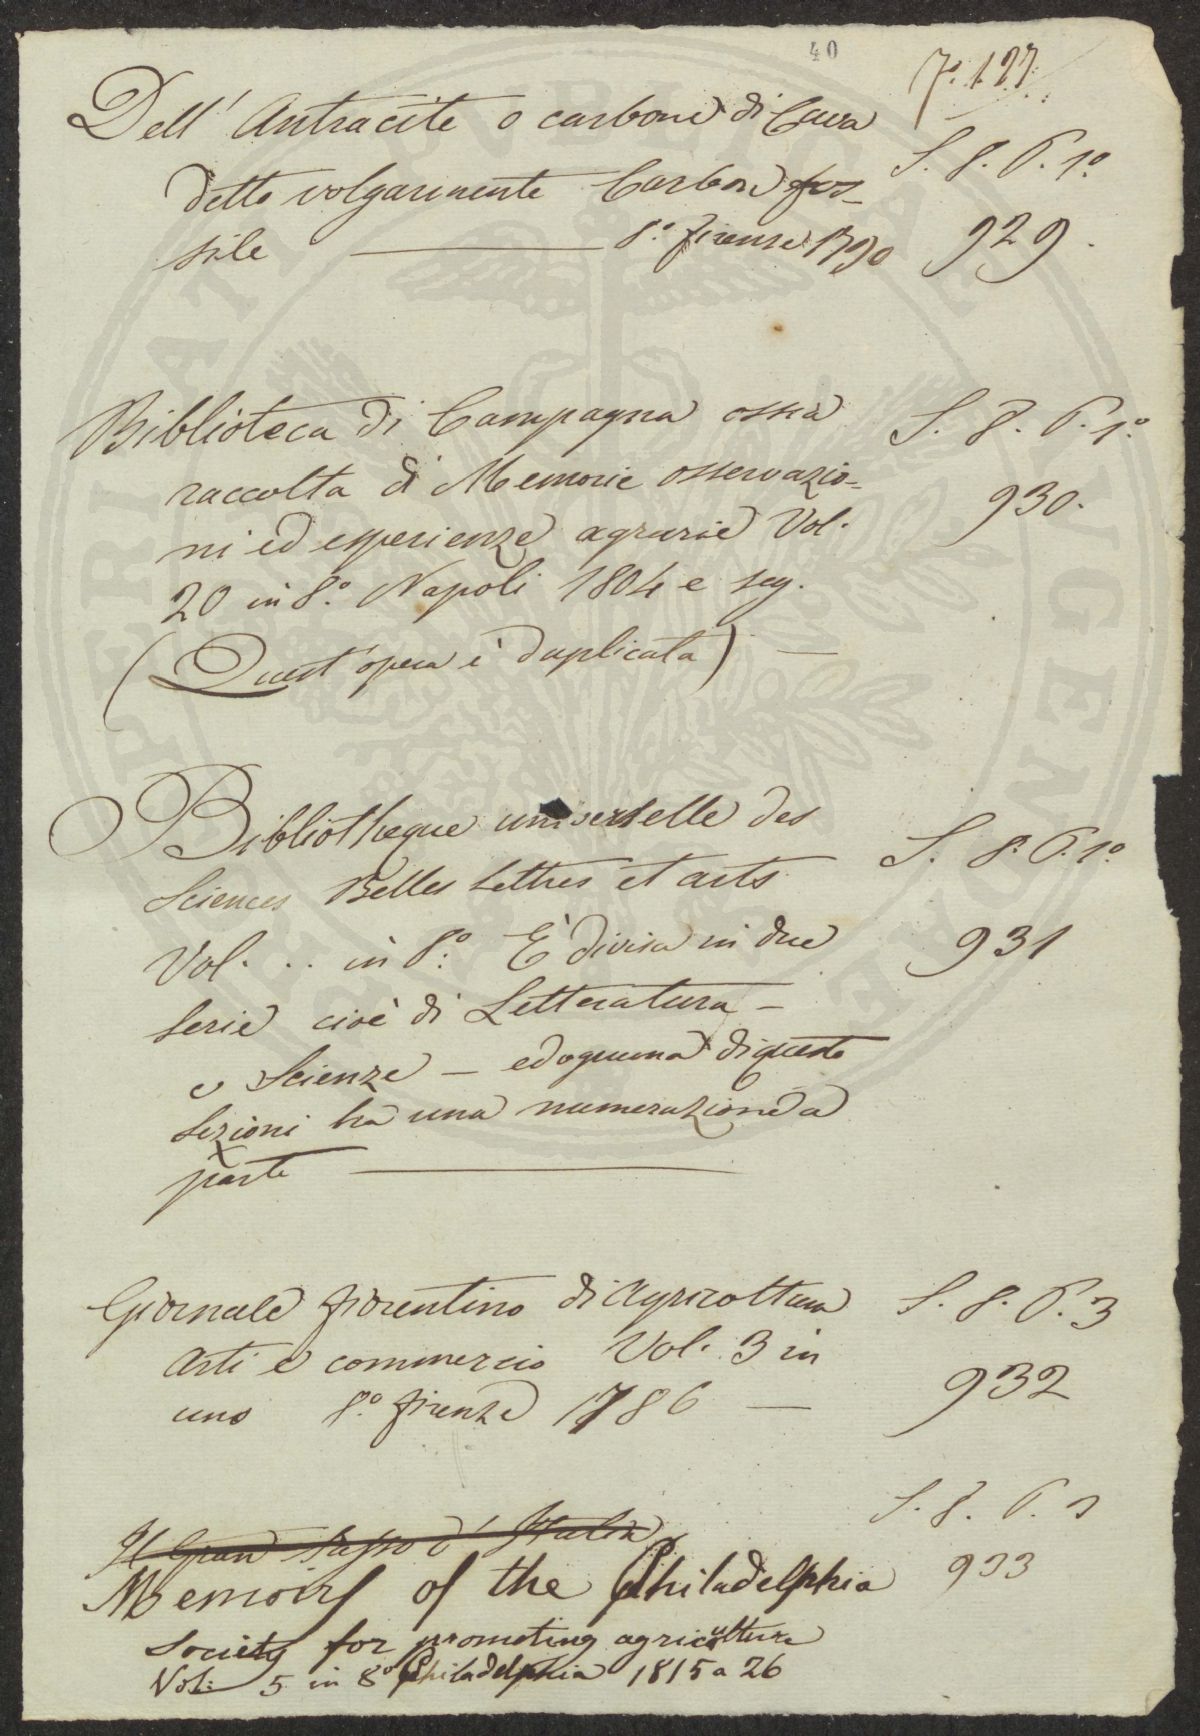 40
7.° 127
Dell' Antracite o carbone di Cava
S. 8. P. 1.°
detto volgarmente Carbon fos-
sile — 8.° Firenze 1790
929.
Biblioteca di Campagna ossia
S. 8. P. 1.°
raccolta di Memorie osservazio=
930.
ni ed esperienze agrarie Vol.
20 in 8.° Napoli 1804 e seg.
(Quest' opera è duplicata) —
Bibliotheque universelle des
S. 8. P. 1.°
Sciences Belles Lettres et arts
Vol. .. in 8.° È divisa in due
931
serie cioè di Letteratura —
e Scienze — ed ognuna di queste
sezioni ha una numerazione a
parte —
Giornale fiorentino di Agricoltura
S. 8. P. 3
Arti e commercio Vol. 3 in
932
uno 8.° Firenze 1786 —
S. 8. P. 3
Il Gran Sasso d' Italia
Memoirs of the Philadelphia
933
Society for promoting agriculture
Vol: 5 in 8° Philadelphia 1815 a 26